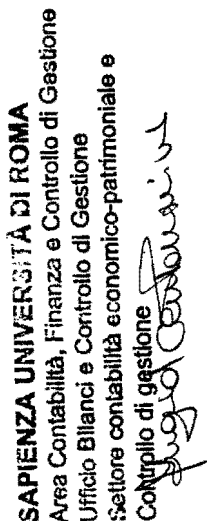 SAPIENZA UNIVERSITÀ DI ROMA
Area Contabilità, Finanza e Controllo di Gestione
Ufficio Bilanci e Controllo di Gestione
Settore contabilità economico-patrimoniale e
Controllo di gestione